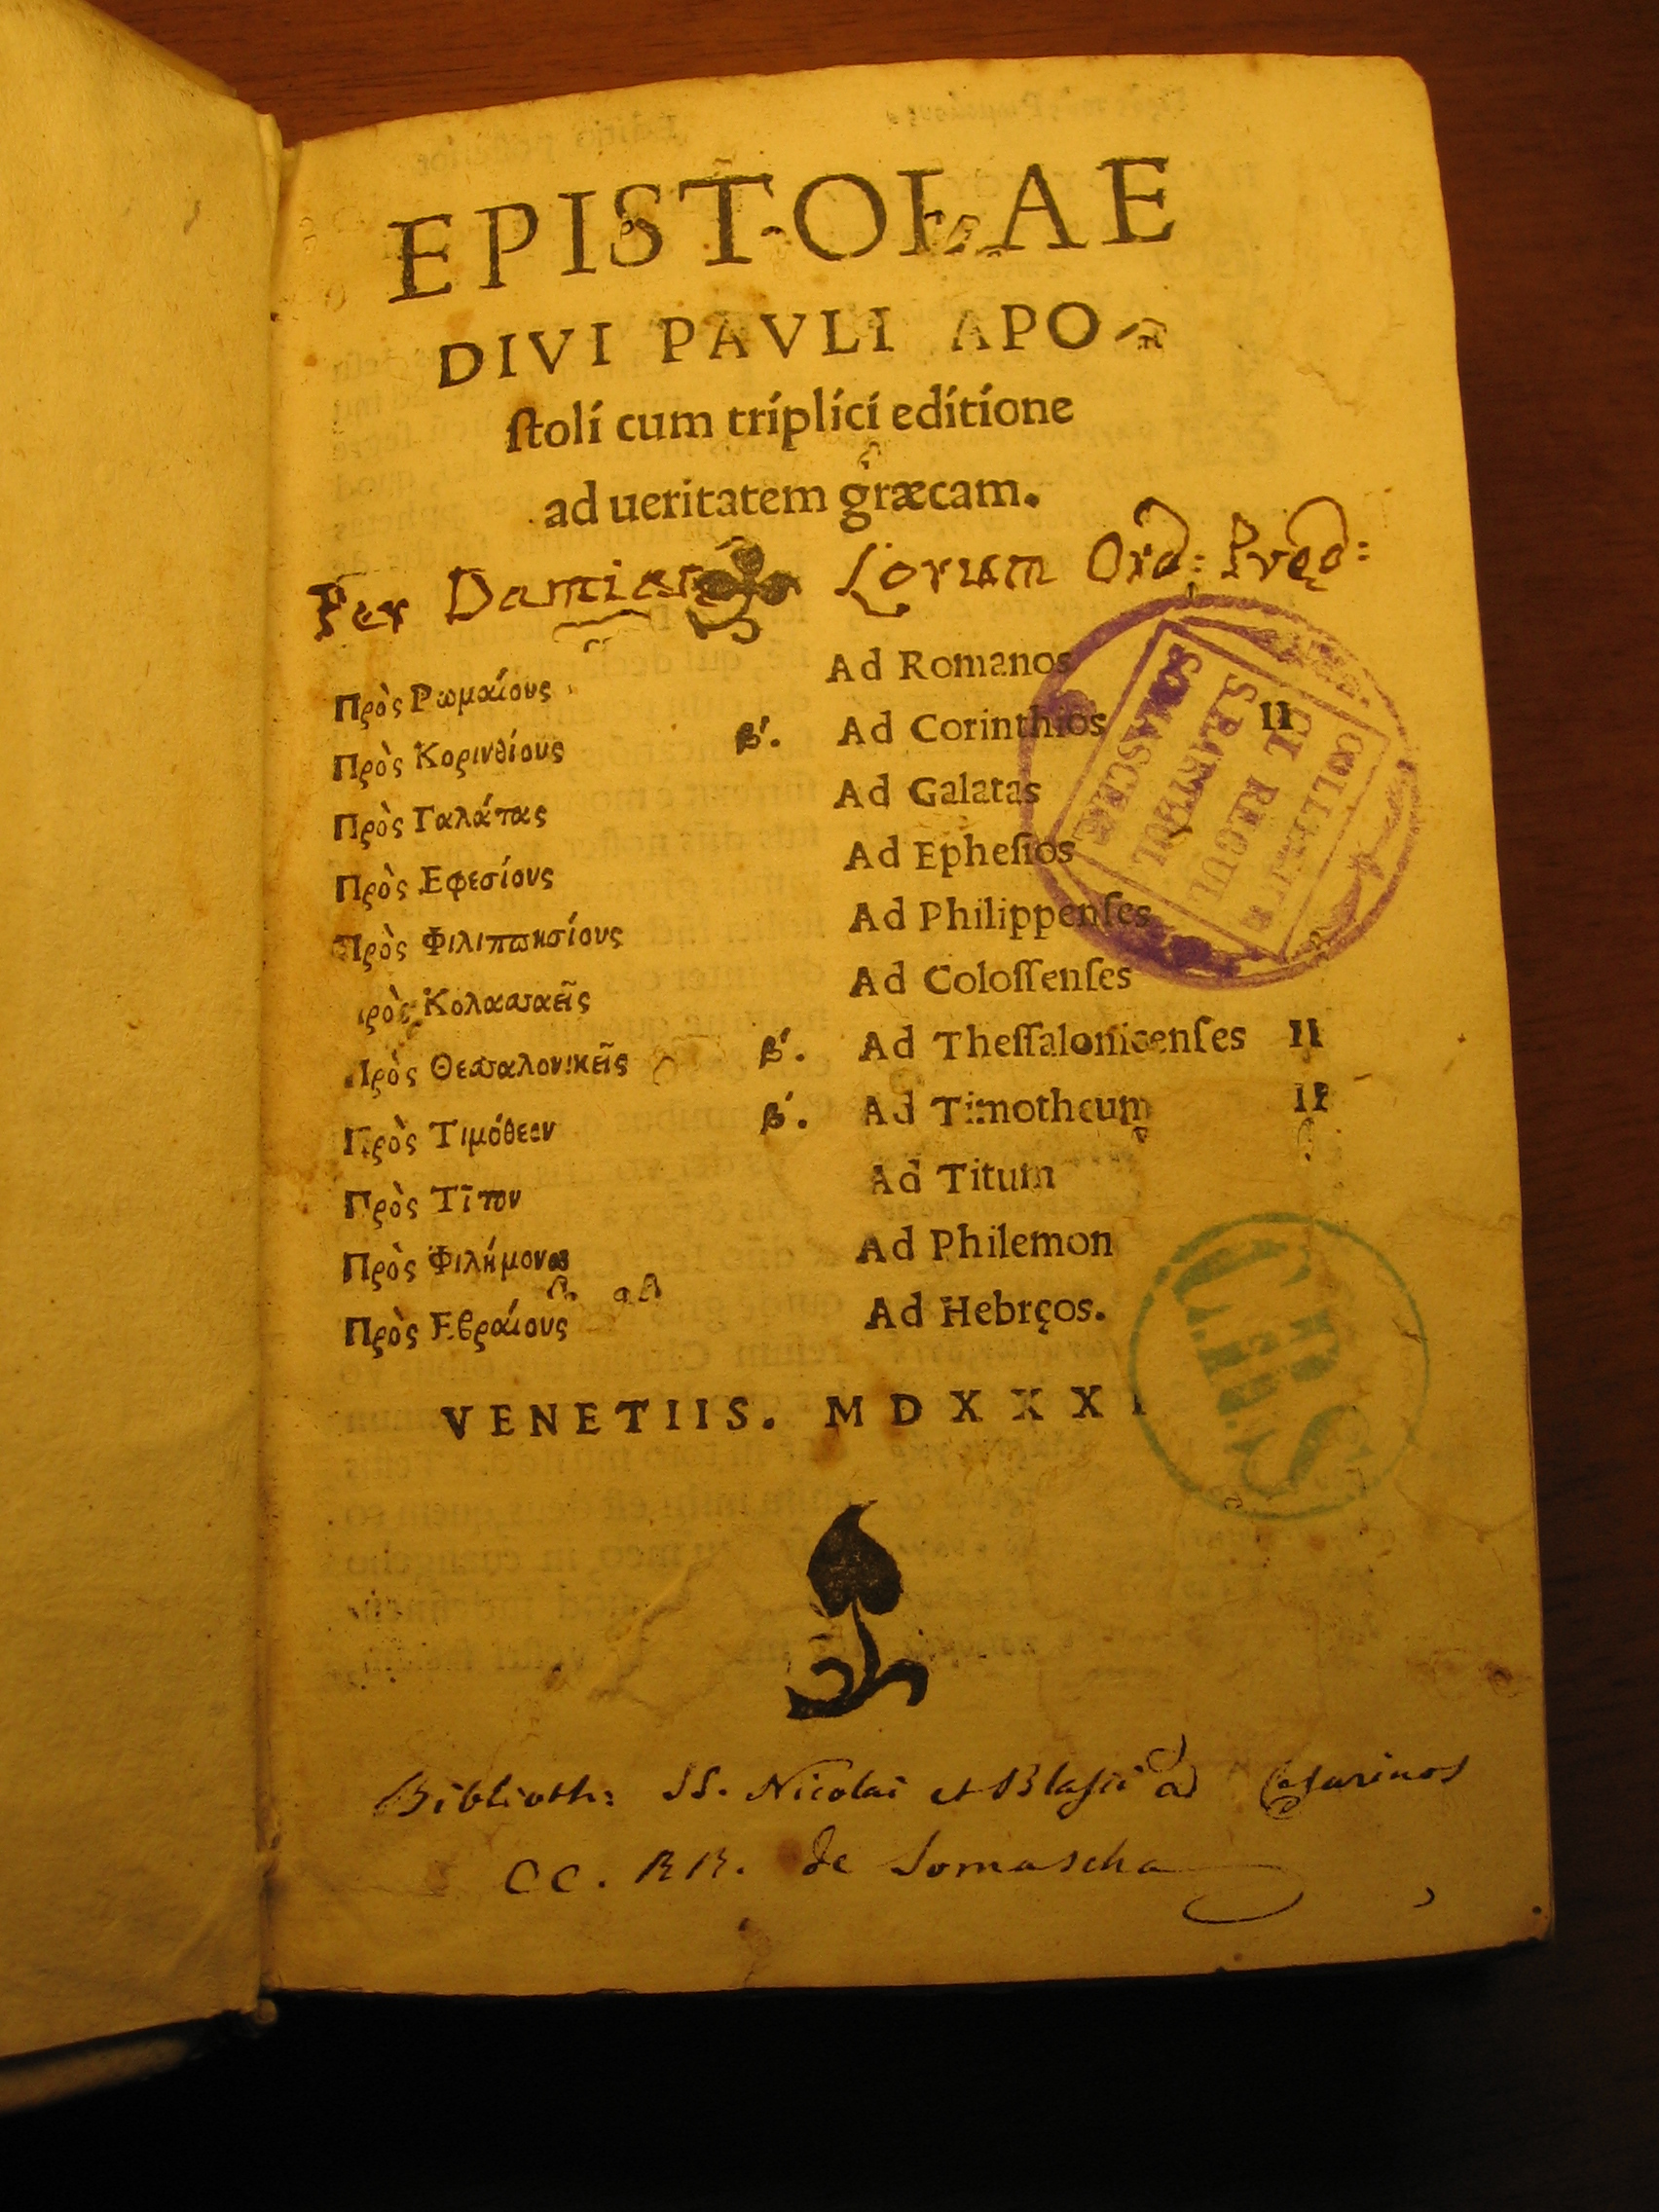 EPISTOLAE
DIVI PAVLI APO-
stoli cum triplici editione
ad ueritatem græcam.
Per Damian Lorum Ord: Pred:
Πρὸς Ρωμαίους Ad Romanos
Πρὸς Κορινθίους β'. Ad Corinthios II
Πρὸς Γαλάτας Ad Galatas
Πρὸς Εφεσίους Ad Ephesios
Πρὸς Φιλιππησίους Ad Philippenses
Πρὸς Κολασσαεῖς Ad Colossenses
Πρὸς Θεσσαλονικεῖς β'. Ad Thessalonicenses II
Πρὸς Τιμόθεον β'. Ad Timotheum II
Πρὸς Τίτον Ad Titum
Πρὸς Φιλήμονα Ad Philemon
Πρὸς Εβραίους Ad Hebręos.
VENETIIS. MDXXXI
Biblioth: SS. Nicolai et Blasii ad Cesarinos
CC. RR. de Somascha
COLLEGII
CL REGUL
SOMASCHÆ